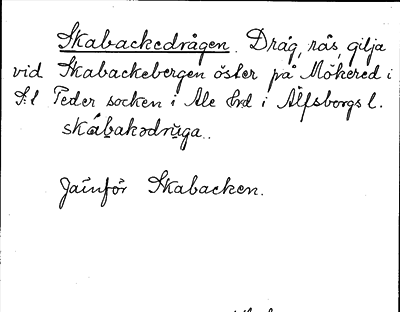 Skabackedrågen. Dråg, rås, gilja
vid Skabackebergen öster på Mökered i
S:t Peder socken i Ale hrd i Älfsborgs l.
skábakədrũga.
Jämför Skabacken.